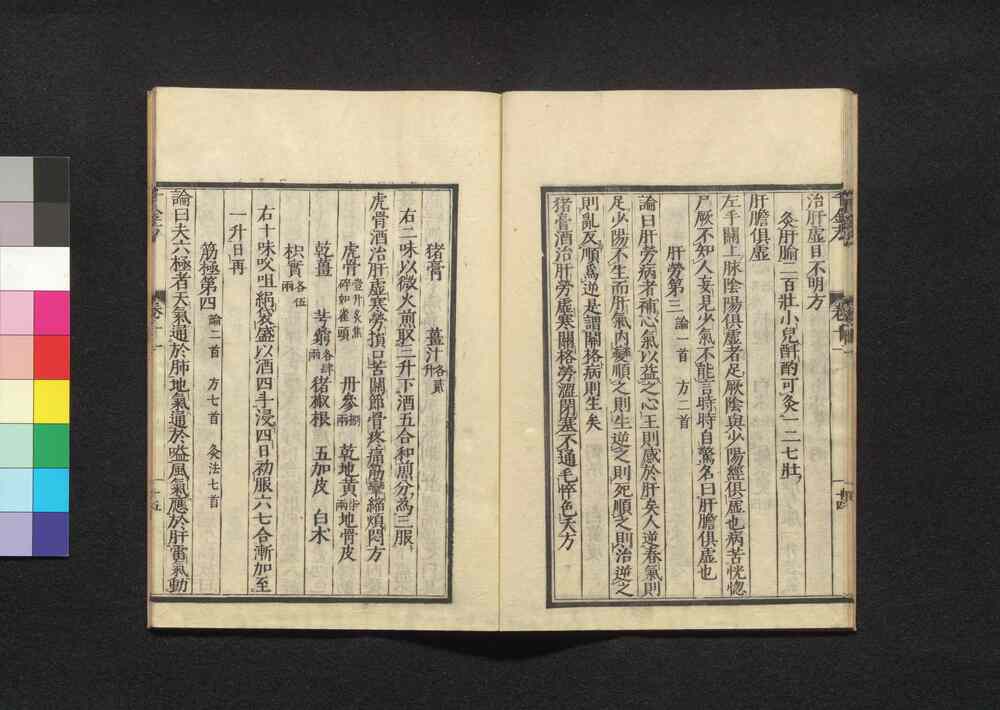 治肝虛目不明方
灸肝腧二百壯小兒斟酌可灸一二七壯
肝膽俱虛
左手關上脉陰陽俱虛者足厥陰與少陽經俱虛也病苦恍惚
尸厥不知人妄見少氣不能言時時自驚名曰肝膽俱虛也
肝勞第三 論一首 方二首
論曰肝勞病者補心氣以益之心王則感於肝矣人逆春氣則
足少陽不生而肝氣內變順之則生逆之則死順之則治逆之
則亂反順爲逆是謂關格病則生矣
猪膏酒治肝勞虛寒關格勞澀閉塞不通毛悴色夭方
猪膏 薑汁各貳升
右二味以微火煎取三升下酒五合和煎分爲三服
虎骨酒治肝虛寒勞損口苦關節骨疼痛筋攣縮煩悶方
虎骨壹升炙焦碎如雀頭 丹參捌兩 乾地黃兩 地骨皮
乾薑 芎藭各肆兩 猪椒根 五加皮 白朮
枳實各伍兩
右十味㕮咀絹袋盛以酒四斗浸四日初服六七合漸加至
一升日再
筋極第四 論二首 方七首 灸法七首
論曰夫六極者天氣通於肺地氣通於嗌風氣應於肝雷氣動